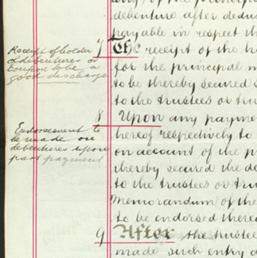 debenture after deduc
payable in respect th
Receipt of holder
of debentures or
coupon to be a
good discharge
7 The receipt of the h
for the principal m
to be thereby secured s
to the trustees or tru
8 Upon any paymen
Endorsement to
be made on
debentures upon
part payment
hereof respectively to
on account of the p
thereby secured the de
to the trustees or trus
Memorandum of the
to be endorsed thereo
9 After the trustee
made such entry a